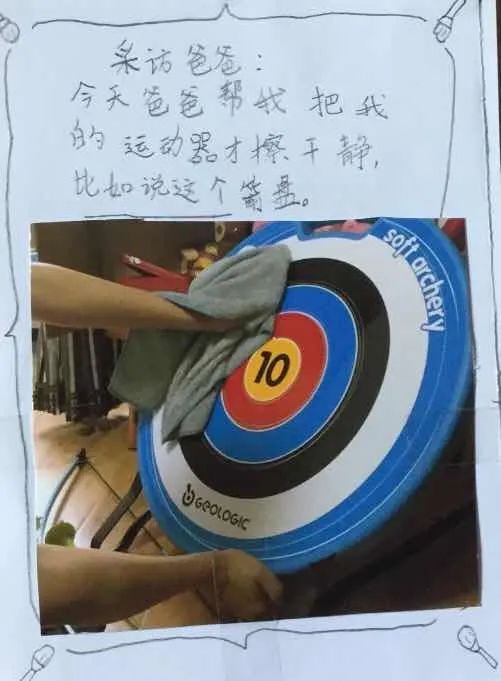 采访爸爸：
今天爸爸帮我把我
的运动器才擦干静，
比如说这个箭盘。
soft archery
10
GEOLOGIC